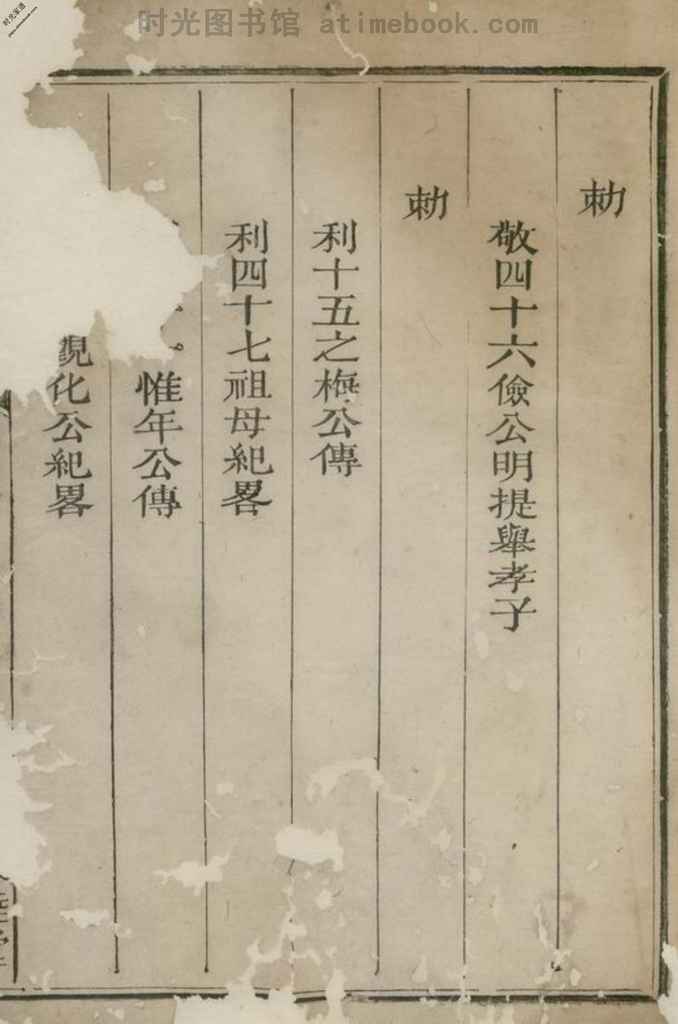 时光图书馆 atimebook.com
时光家谱
勅
敬四十六儉公明提舉孝子
勅
利十五之梅公傳
利四十七祖母紀畧
惟年公傳
觀化公紀畧
堂